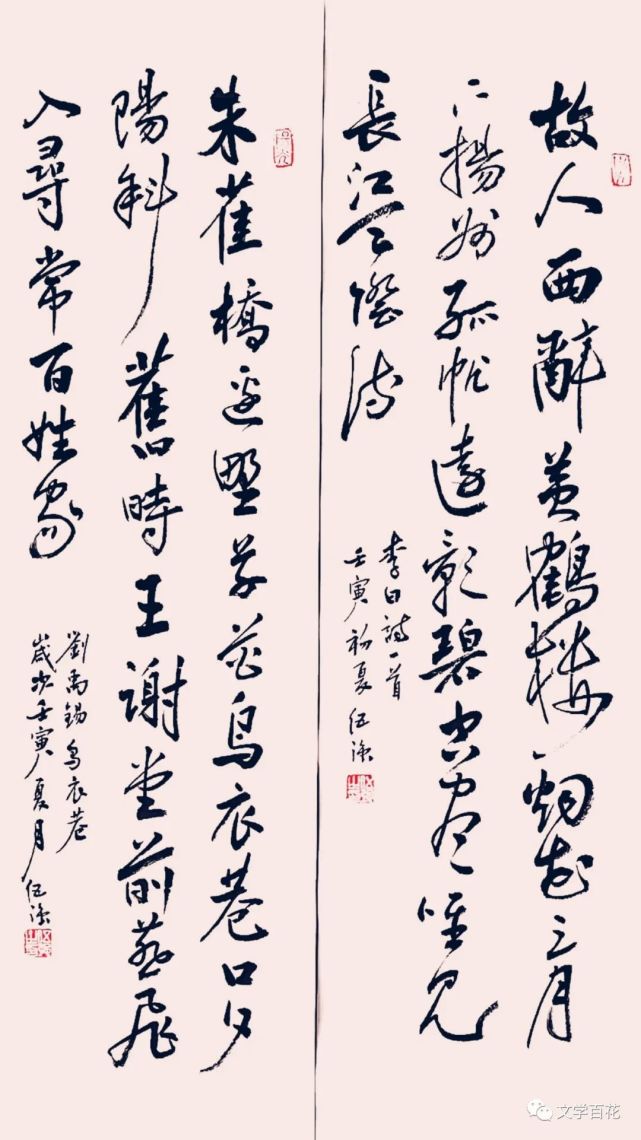 故人西辭黄鶴樓烟花三月
下揚州孤帆遠影碧空尽唯見
長江天際流
李白詩一首
壬寅初夏
朱雀橋邊野草花烏衣巷口夕
陽斜舊時王謝堂前燕飛
入尋常百姓家
劉禹錫烏衣巷
歲次壬寅夏月
文学百花